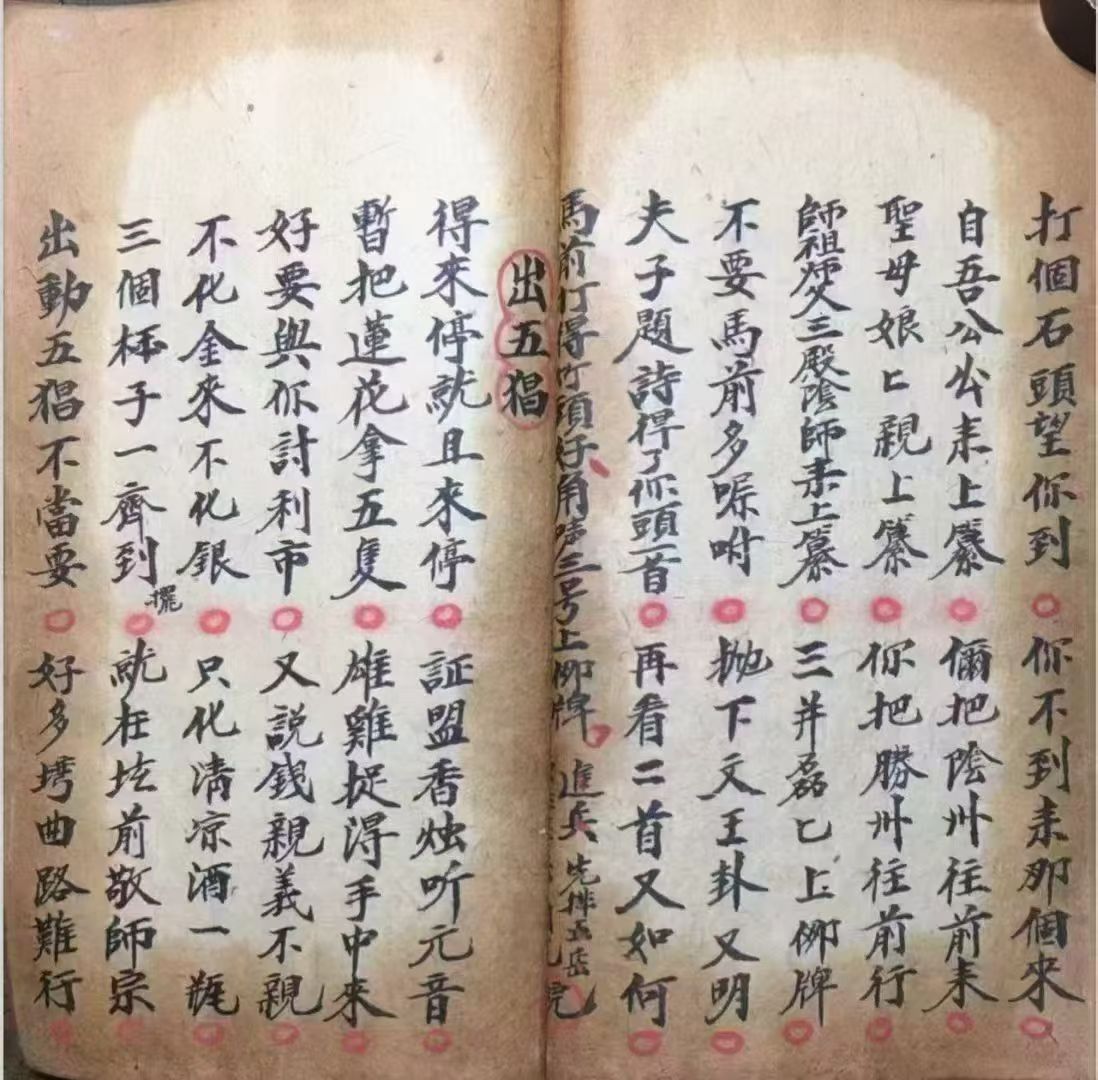 打個石頭望你到 你不到耒那個來
自吾公公耒上纂 儞把陰州往前耒
聖母娘匕親上纂 你把勝州往前行
師祖師父三殿陰師耒上纂 三并磊匕上卿牌
不要馬前多嘱咐 抛下文王卦又明
夫子題詩得了你頭一首 再看二首又如何
馬前行得 頭好角 三号上卿牌 進兵 先排五岳
出五猖
得來停就且來停 証盟香烛听元音
暫把蓮花拿五隻 雄雞捉淂手中來
好要與你討利市 又説銭親義不親
不化金來不化銀 只化清凉酒一瓶
三個杯子一齊到 擺 就在坛前敬師宗
出動五猖不當耍 好多塆曲路難行